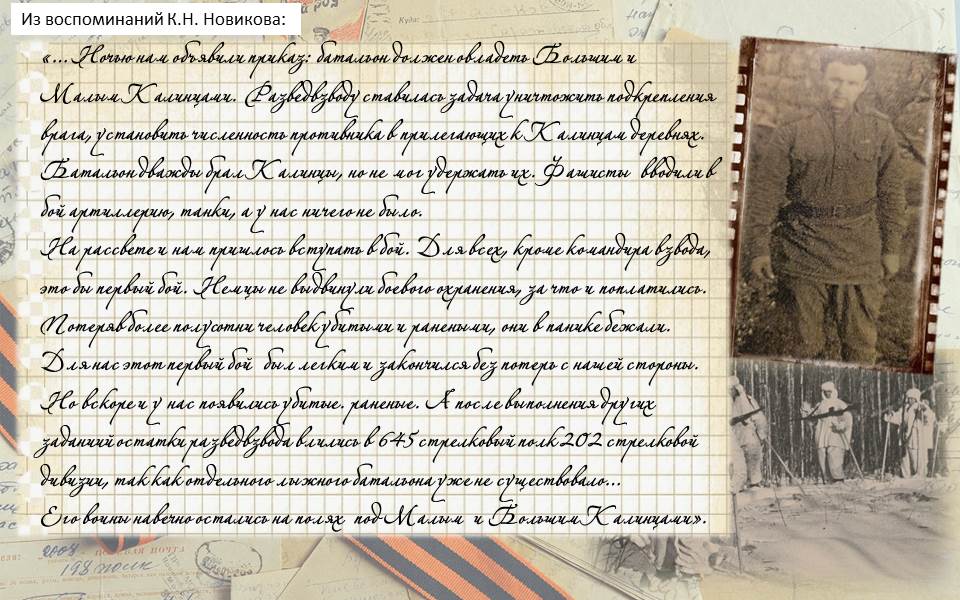 Из воспоминаний К.Н. Новикова:
«…Ночью нам объявили приказ: батальон должен овладеть Большим и
Малым Калинцами. Разведвзводу ставилась задача уничтожить подкрепления
врага, установить численность противника в прилегающих к Калинцам деревнях.
Батальон дважды брал Калинцы, но не мог удержать их. Фашисты вводили в
бой артиллерию, танки, а у нас ничего не было.
На рассвете и нам пришлось вступать в бой. Для всех, кроме командира взвода,
это бы первый бой. Немцы не выдвинули боевого охранения, за что и поплатились.
Потеряв более полусотни человек убитыми и ранеными, они в панике бежали.
Для нас этот первый бой был легким и закончился без потерь с нашей стороны.
Но вскоре и у нас появились убитые. раненые. А после выполнения других
заданиий остатки разведвзвода влились в 645 стрелковый полк 202 стрелковой
дивизии, так как отдельного лыжного батальона уже не существовало…
Его воины навечно остались на полях под Малым и Большим Калинцами».
198 полк